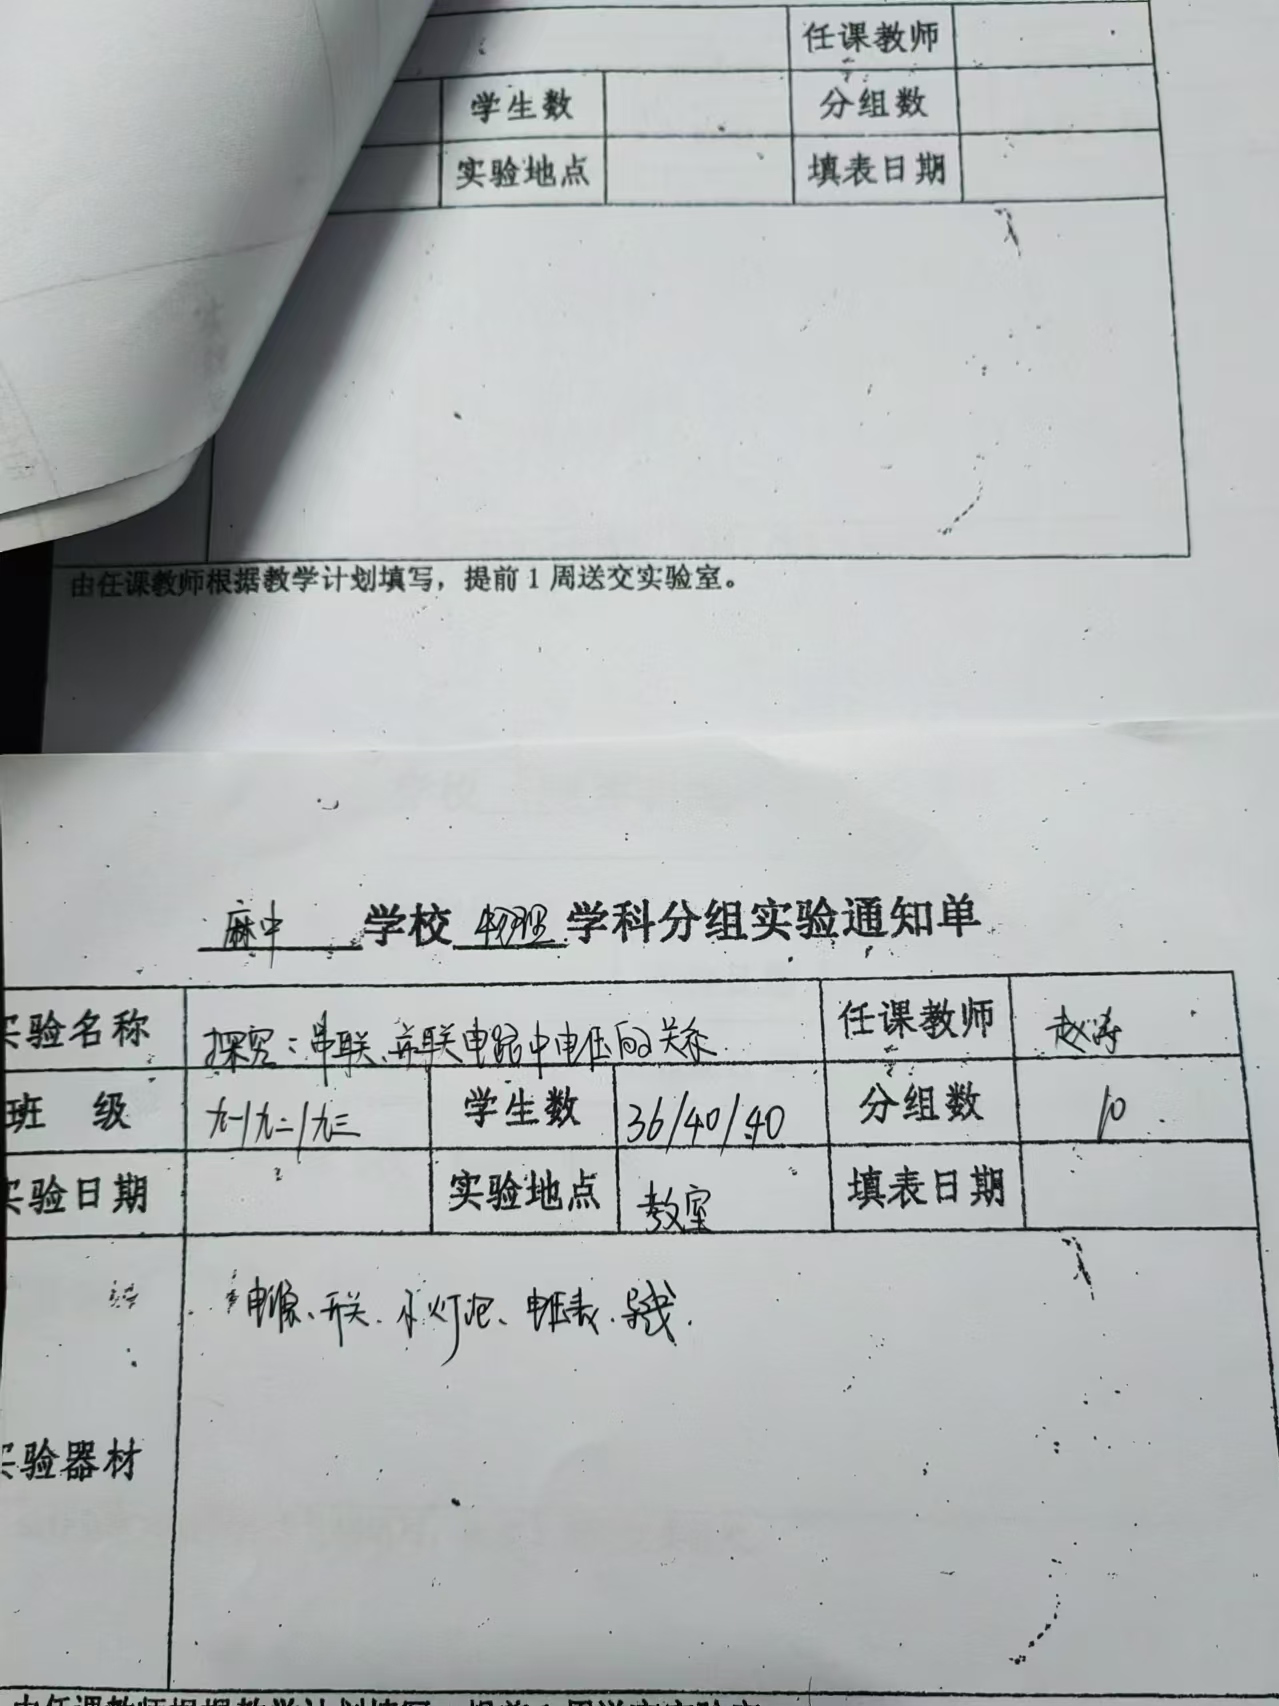 任课教师
学生数 分组数
实验地点 填表日期
由任课教师根据教学计划填写，提前1周送交实验室。
麻中 学校 物理 学科分组实验通知单
实验名称 探究：串联、并联电路中电压的关系 任课教师 赵涛
班 级 九一/九二/九三 学生数 36/40/40 分组数 10
实验日期 实验地点 教室 填表日期
电源、开关、小灯泡、电压表、导线.
实验器材
由任课教师根据教学计划填写，提前1周送交实验室